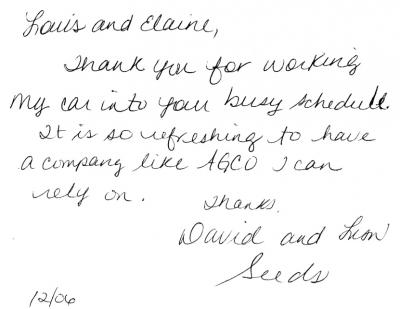 Louis and Elaine,
Thank you for working
my car into your busy schedule.
It is so refreshing to have
a company like AGCO I can
rely on.
Thanks.
David and
Seeds
12/06